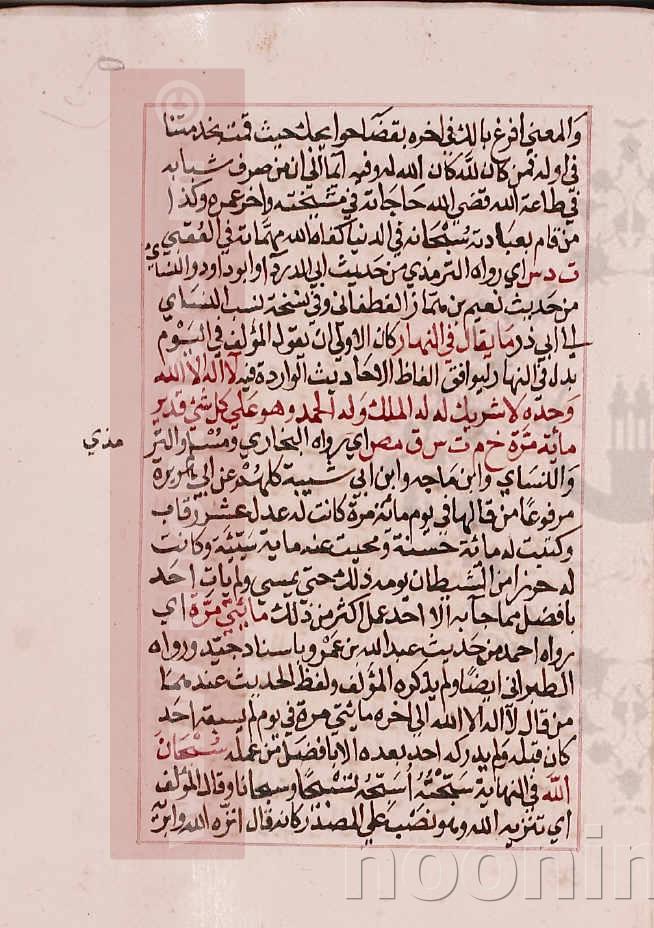 والمعنى افرغ بالك في اخره بقضا حوايجك حيث قمت بخدمتنا
في اوله فمن كان لله كان الله له وفيه ايما الى ان من صرف شبابه
في طاعة الله قضى الله حاجاته في مشيخته واخر عمره وكذا
من قام بعبادته سبحانه في الدنيا كفاه الله مهماته في العقبى
ت د س اي رواه الترمذي من حديث ابي الدردآ وابو داود والنساي
من حديث نعيم بن همّاز الغطفاني وفي نسخة نسب النساي
الى ابي ذر ما يقال في النهار كان الاولى ان يقول المؤلف في اليوم
بدل في النهار ليوافق الفاظ الاحاديث الواردة فيه لا اله الا الله
وحده لا شريك له له الملك وله الحمد وهو على كل شئ قدير
مائة مرّة خ م ت س ق مص اي رواه البخاري ومسلم والتر
مذي
والنساي وابن ماجه وابن ابي شيبة كلهم عن ابي هريرة
مرفوعا من قالها في يوم مائة مرة كانت له عدل عشر رقاب
وكتبت له مائة حسنة ومحيت عنه ماية سيّئة وكانت
له حرزا من الشيطان يومه ذلك حتى يمسي ولم يات احد
بافضل مما جآ به الا احد عمل اكثر من ذلك مائتي مرّة اي
رواه احمد من حديث عبد الله بن عمرو باسناد جيّد ورواه
الطبراني ايضا ولم يذكره المؤلف ولفظ الحديث عندهما
من قال لا اله الا الله الى اخره مائتي مرة في يوم لم يسبقه احد
كان قبله ولم يدركه احد بعده الا بافضل من عمله سبحان
الله في النهاية سبّحته اسبّحه تسبيحا وسبحانا وقال المؤلف
اي تنزيه الله وهو نصب على المصدر كانه قال انزّه الله وابرئه
noonin